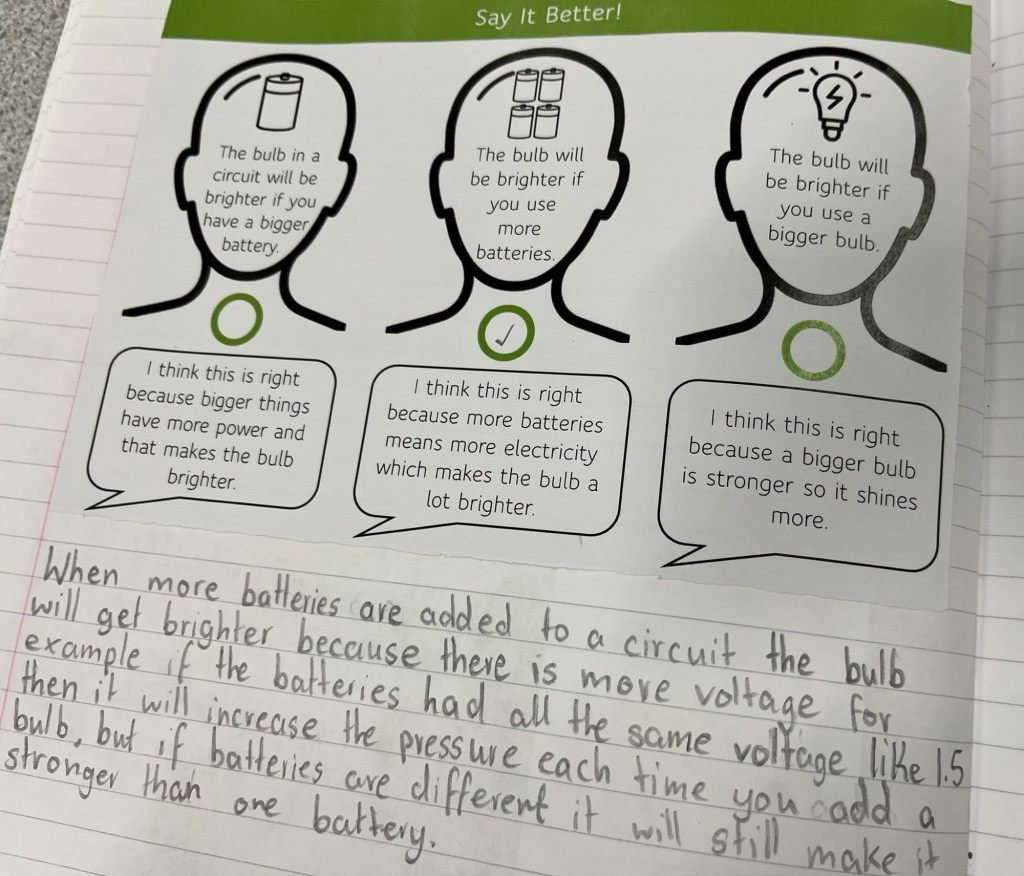 Say It Better!
The bulb in a
circuit will be
brighter if you
have a bigger
battery.
The bulb will
be brighter if
you use
more
batteries.
The bulb will
be brighter if
you use a
bigger bulb.
✓
I think this is right
because bigger things
have more power and
that makes the bulb
brighter.
I think this is right
because more batteries
means more electricity
which makes the bulb a
lot brighter.
I think this is right
because a bigger bulb
is stronger so it shines
more.
When more batteries are added to a circuit the bulb
will get brighter because there is more voltage for
example if the batteries had all the same voltage like 1.5
then it will increase the pressure each time you add a
bulb, but if batteries are different it will still make it
stronger than one battery.